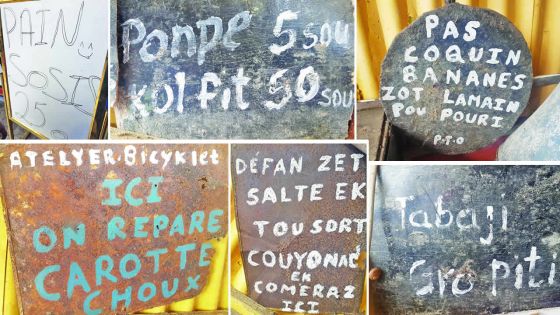 PAIN
SOSIS
25
Ponpe 5 sou
kol pit 50 sou
PAS
COQUIN
BANANES
ZOT LAMAIN
POU POURI
P.T.O
ATELYER.Bicyklet
ICI
ON REPARE
CAROTTE
CHOUX
DÉFAN ZET
SALTE EK
TOUSORT
COUYONAD
EK
COMERAZ
ICI
Tabaji
Gro piti